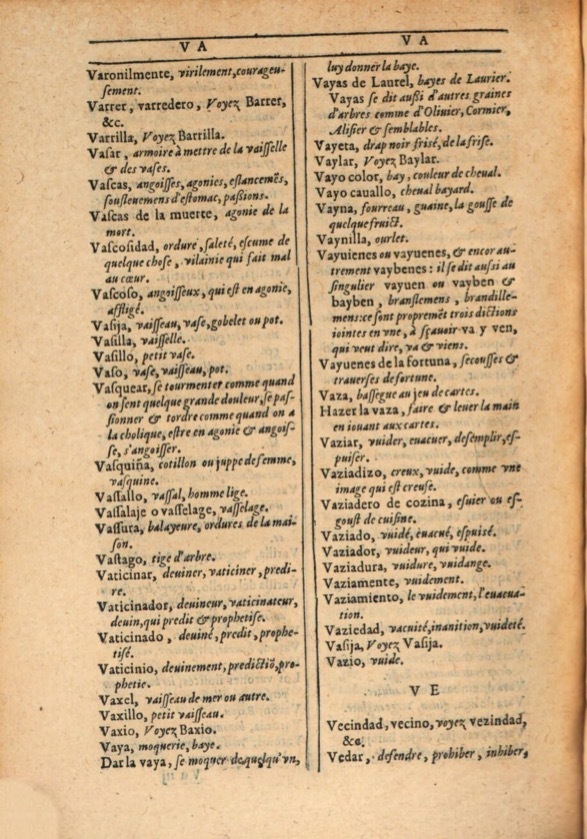 VA
Varonilmente, virilement, courageu-
sement.
Varrer, varredero, Voyez Barrer,
&c.
Varrilla, Voyez Barrilla.
Vasar, armoire à mettre de la vaisselle
& des vases.
Vascas, angoisses, agonies, eslancemẽs,
souslevemens d'estomac, passions.
Vascas de la muerte, agonie de la
mort.
Vascosidad, ordure, saleté, escume de
quelque chose, vilainie qui fait mal
au cœur.
Vascoso, angoisseux, qui est en agonie,
affligé.
Vasija, vaisseau, vase, gobelet ou pot.
Vasilla, vaisselle.
Vasillo, petit vase.
Vaso, vase, vaisseau, pot.
Vasquear, se tourmenter comme quand
on sent quelque grande douleur, se pas-
sionner & tordre comme quand on a
la cholique, estre en agonie & angois-
se, s'angoisser.
Vasquiña, cotillon ou juppe de femme,
vasquine.
Vassallo, vassal, homme lige.
Vassalaje o vasselage, vasselage.
Vassura, balayeure, ordures de la mai-
son.
Vastago, tige d'arbre.
Vaticinar, deuiner, vaticiner, predi-
re.
Vaticinador, deuineur, vaticinateur,
deuin, qui predit & prophetise.
Vaticinado, deuiné, predit, prophe-
tisé.
Vaticinio, deuinement, predictiõ, pro-
phetie.
Vaxel, vaisseau de mer ou autre.
Vaxillo, petit vaisseau.
Vaxio, Voyez Baxio.
Vaya, moquerie, baye.
Dar la vaya, se moquer de quelqu'vn,
VA
luy donner la baye.
Vayas de Laurel, bayes de Laurier.
Vayas se dit aussi d'autres graines
d'arbres comme d'Olivier, Cormier,
Alisier & semblables.
Vayeta, drap noir frisé, de la frise.
Vaylar, Voyez Baylar.
Vayo color, bay, couleur de cheual.
Vayo cauallo, cheual bayard.
Vayna, fourreau, guaine, la gousse de
quelque fruict.
Vaynilla, ourlet.
Vayuienes ou vayuenes, & encor au-
trement vaybenes: il se dit aussi au
singulier vayuen ou vayben &
bayben, branslemens, brandille-
mens: ce sont propremẽt trois dictions
iointes en vne, à sçauoir va y ven,
qui veut dire, va & viens.
Vayuenes de la fortuna, secousses &
trauerses de fortune.
Vaza, bassegue au jeu de cartes.
Hazer la vaza, faire & leuer la main
en iouant aux cartes.
Vaziar, vuider, euacuer, desemplir, es-
puiser.
Vaziadizo, creux, vuide, comme vne
image qui est creuse.
Vaziadero de cozina, esuier ou es-
goust de cuisine.
Vaziado, vuidé, euacué, espuisé.
Vaziador, vuideur, qui vuide.
Vaziadura, vuidure, vuidange.
Vaziamente, vuidement.
Vaziamiento, le vuidement, l'euacua-
tion.
Vaziedad, vacuité, inanition, vuideté.
Vasija, Voyez Vasija.
Vazio, vuide.
VE
Vecindad, vecino, voyez vezindad,
&c.
Vedar, defendre, prohiber, inhiber,